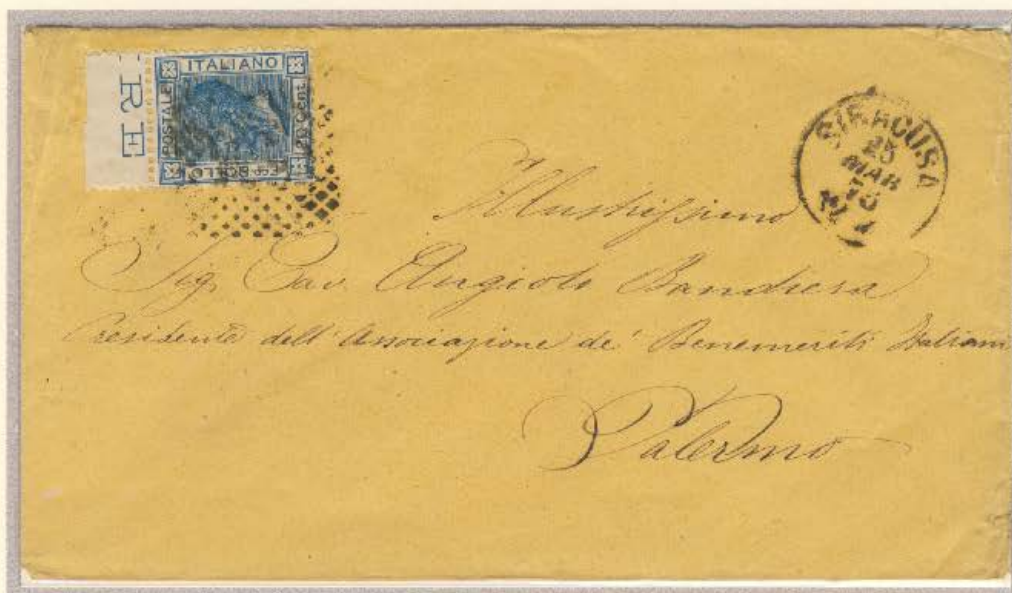 ITALIANO
POSTALE
20 Cent.
FCO BOLLO
RE
SIRACUSA
25
MAR
70
Illustrissimo
Sig. Cav. Angiolo Bandiera
Presidente dell'Associazione de' Benemeriti Italiani
Palermo